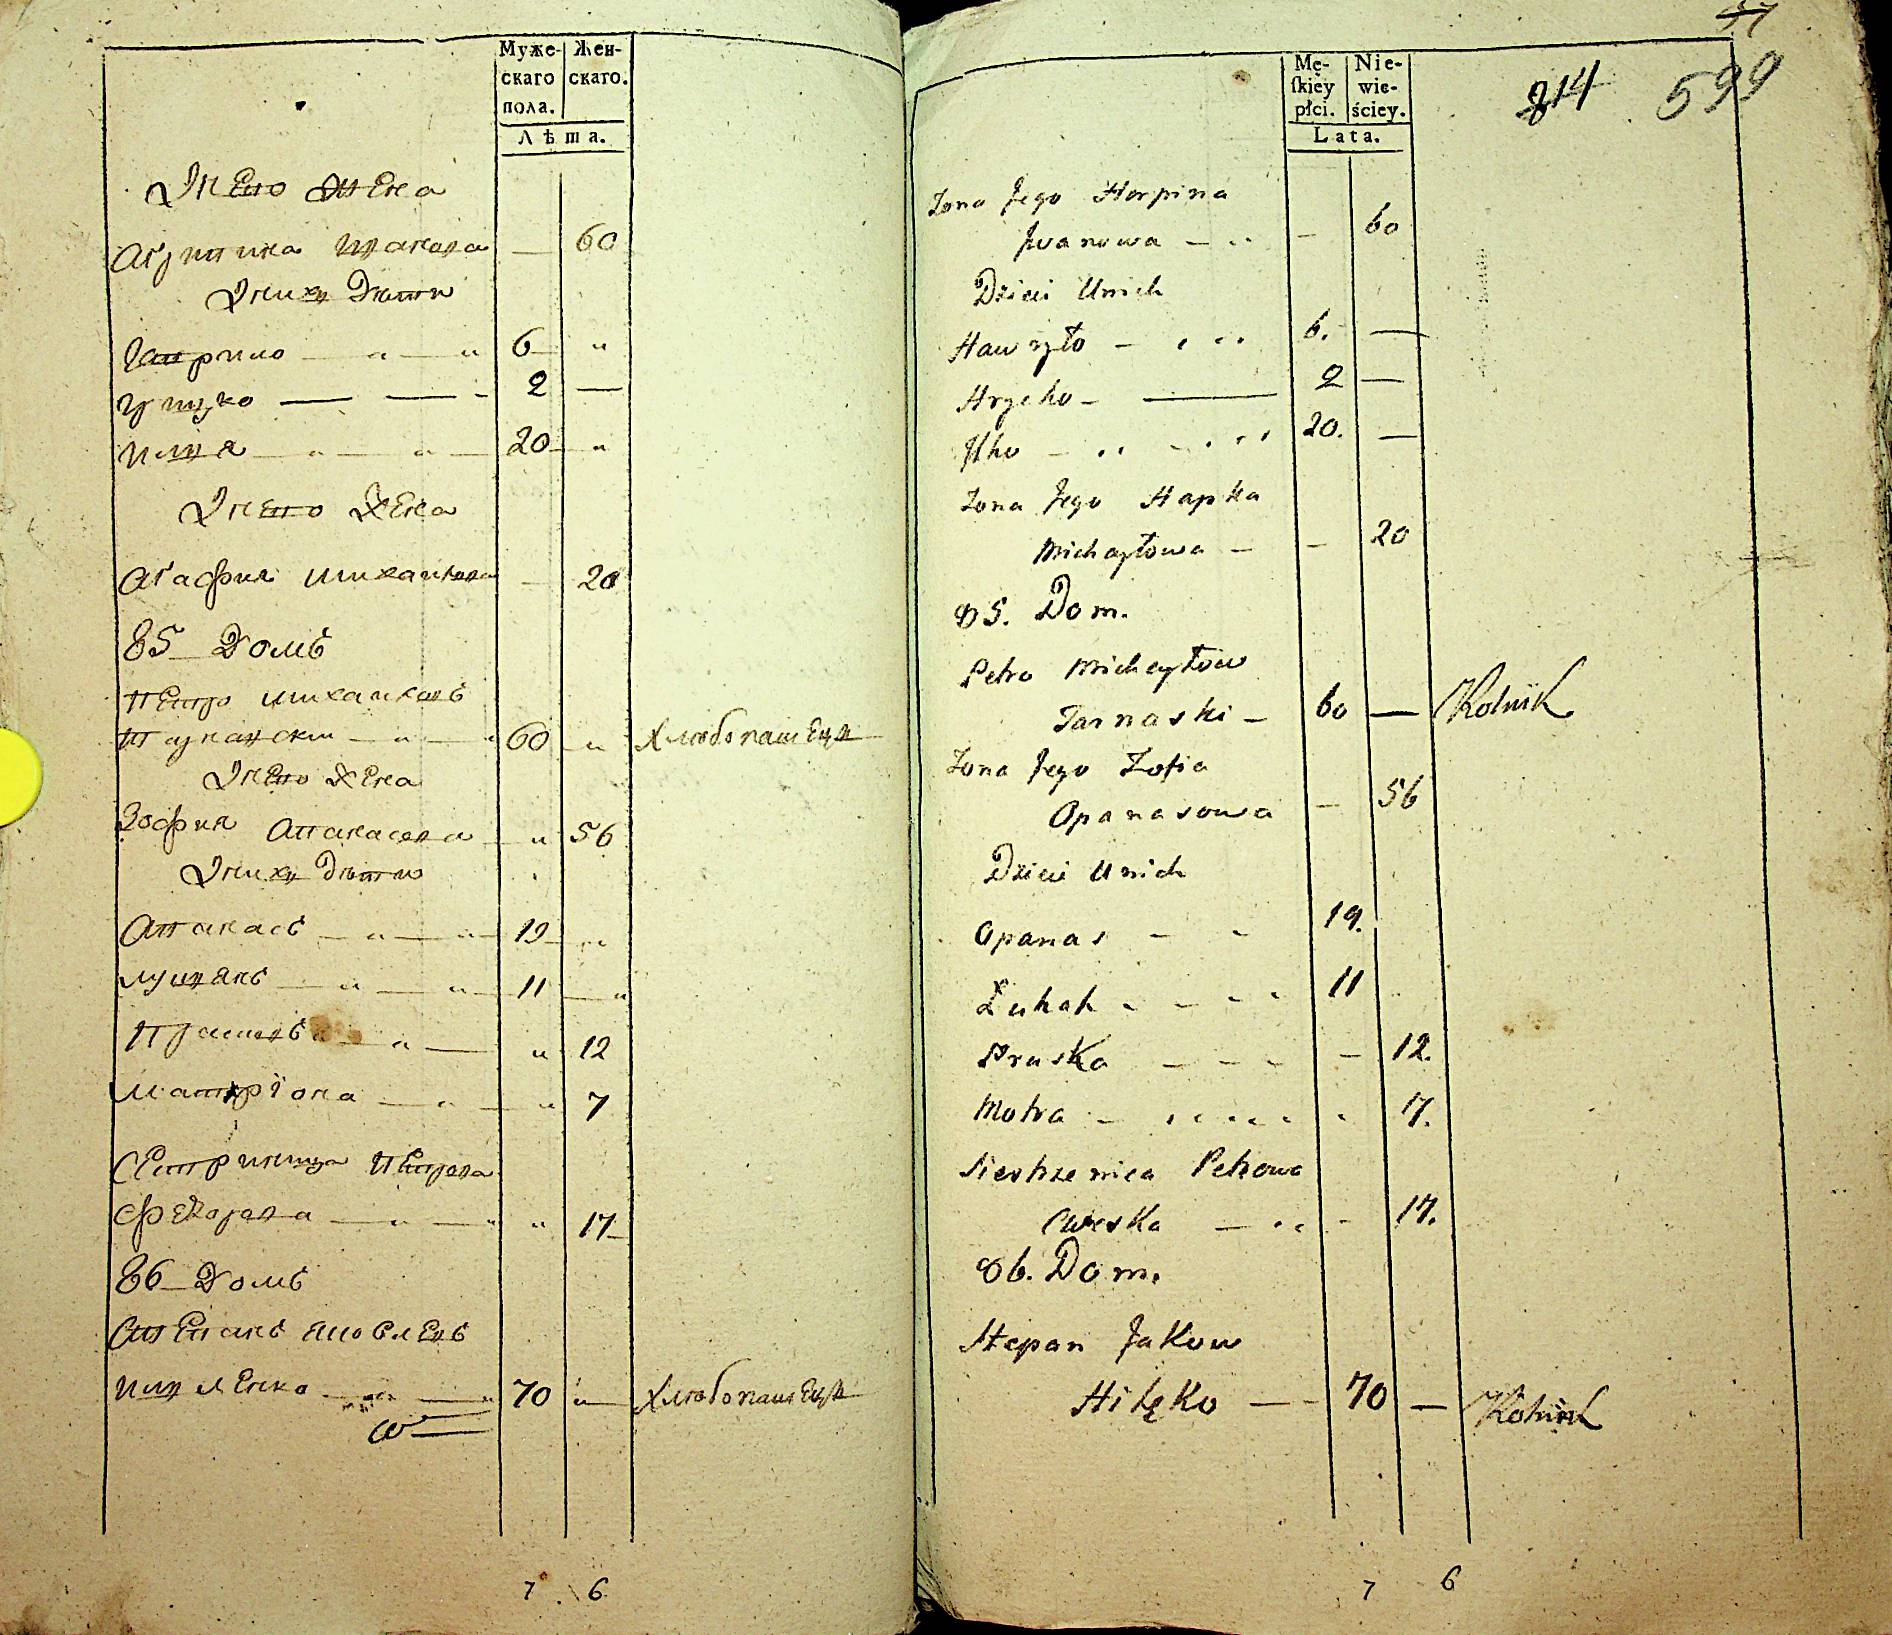 Муже-
скаго
пола.
Жен-
скаго.
Лѣта.
У него жена
Агрипина Иванова — 60
У нихъ Дѣти
Гаврило — " — " 6 "
Грицко — — - 2 —
Илья — " — " — 20 "
У него Жена
Агафия Михайлова — 20
85 Домъ
Петро Михайловъ
Тарнавски — " — " 60 " Хлѣбопашецъ
У него Жена
Зофия Опанасова — " 56
У нихъ Дѣти
Опанасъ — " — " 19 "
Лукянъ — " — " — 11 — "
" — " 12
Матрїона — " — " 7
Сестриница Петрова
Федорова — " — " " 17
86 Домъ
Степанъ Яковлевъ
— " — " 70 " Хлѣбопашецъ
7 6
Mę-
ſkiey
płci.
Nie-
wie-
ściey.
Lata.
814 599
Zona Jego Horpina
Iwanowa — - — 60
Dzieci Unich
Hawryło — 6. —
Hryćko - — 2 —
Ilko — 20. —
Zona Jego Hapka
Michayłowa — - 20
85. Dom.
Petro Michayłow
Tarnaski — 60 — Rolnik
Zona Jego Zofia
Opanasowa — 56
Dzieci Unich
Opanas — - 19.
Łukah - - - - 11
Pruska - - - - 12.
Motra — 7.
Siestrzenica Petrowa
— 17.
86. Dom.
Stepan Jakow
— - 70 — Rolnik
7 6